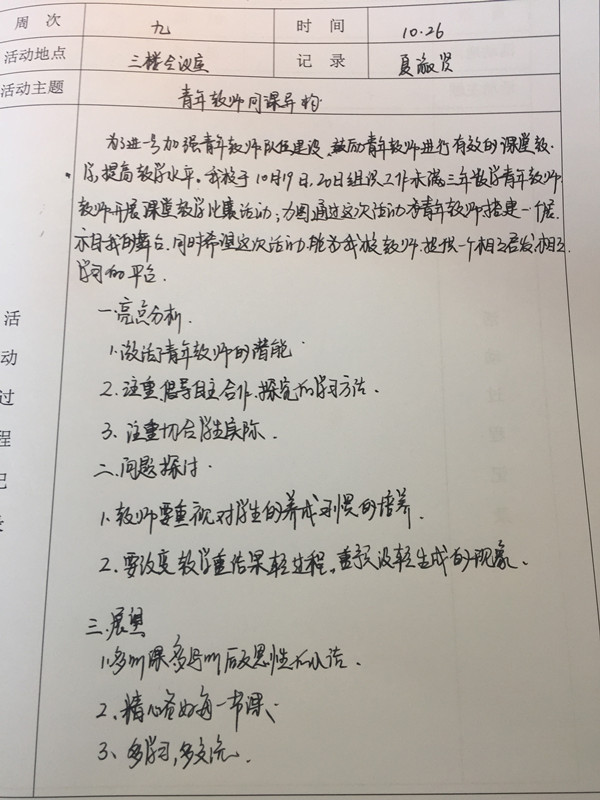 周 次 九 时 间 10.26
活动地点 三楼会议室 记 录 夏淑贤
活动主题 青年教师同课异构
为了进一步加强青年教师队伍建设,鼓励青年教师进行有效的课堂教
学,提高教学水平。我校于10月19日、20日组织工作未满三年数学青年教师
教师开展课堂教学比赛活动;力图通过这次活动为青年教师搭建一个展
示自我的舞台,同时希望这次活动能为我校教师提供一个相互启发,相互
学习的平台.
一.亮点分析.
1.激活了青年教师的潜能
2.注重倡导自主合作、探究的学习方法.
3、注重切合学生实际.
二.问题探讨.
1.教师要重视对学生的养成习惯的培养.
2.要改变教学重结果轻过程,重预设轻生成的现象、
三.展望
1.多听课多写听后反思性
2、精心备好每一节课、
3、多学习,多交流.
活
动
过
程
记
录